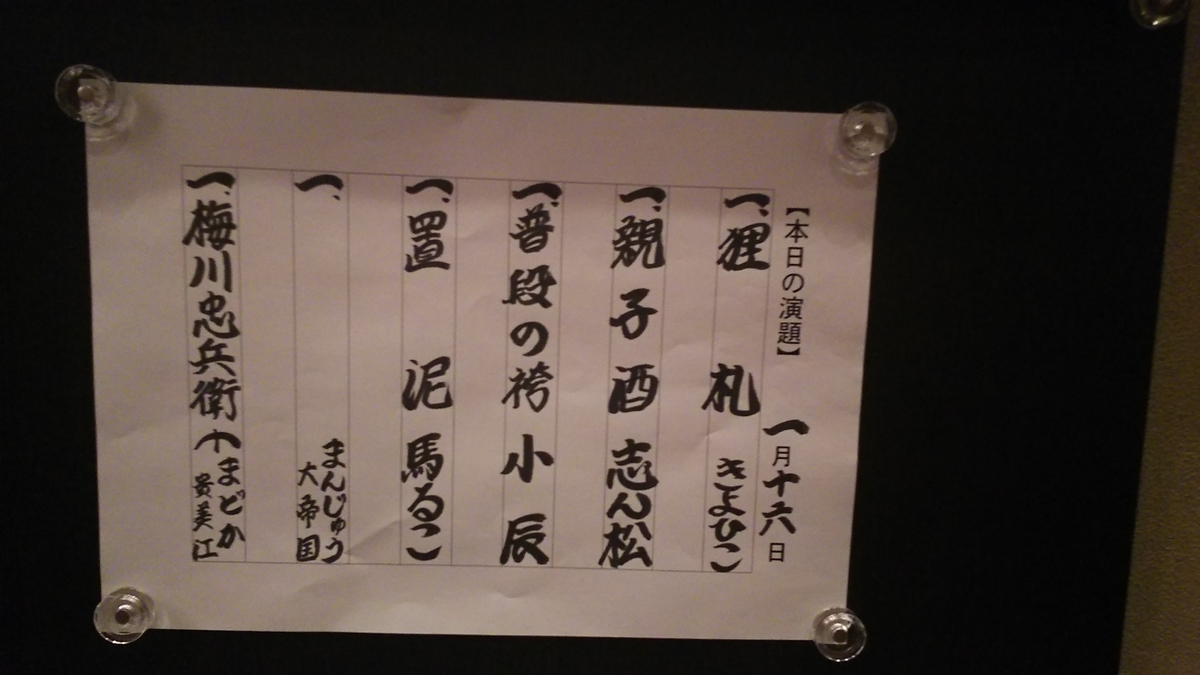 【本日の演題】 一月十六日
一、狸札 きよひこ
一、親子酒 志ん松
一、普段の袴 小辰
一、置泥 馬るこ
一、 まんじゅう大帝国
一、梅川忠兵衛 まどか 貴美江